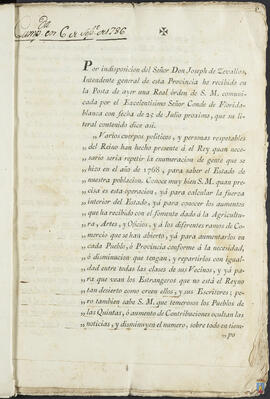 Cump. en 6 de Agto. de 1786
✠
Por indisposicion del Señor Don Joseph de Zevallos,
Intendente general de esta Provincia he recibido en
la Posta de ayer una Real órden de S. M. comuni-
cada por el Excelentísimo Señor Conde de Florida-
blanca con fecha de 25 de Julio proximo, que su li-
teral contenido dice asi.
„Varios cuerpos politicos, y personas respetables
„del Reino han hecho presente á el Rey quan nece-
„sario seria repetir la enumeracion de gente que se
„hizo en el año de 1768, para saber el Estado de
„nuestra poblacion. Conoce muy bien S. M. quan pre-
„cisa es esta operacion, yá para calcular la fuerza
„interior del Estado, yá para conocer los aumentos
„que ha recibido con el fomento dado á la Agricultu-
„ra, Artes, y Oficios, y á los diferentes ramos de Co-
„mercio que se han abierto, yá para aumentarlos en
„cada Pueblo, ó Provincia conforme á la necesidad,
„ó disminucion que tengan, y repartirlos con igual-
„dad entre todas las clases de sus Vecinos, y yá pa-
„ra que vean los Estrangeros que no está el Reyno
„tan desierto como creen ellos, y sus Escritores; pe-
„ro tambien sabe S. M. que temerosos los Pueblos de
„las Quintas, ó aumento de Contribuciones ocultan las
„noticias, y disminuyen el numero, sobre todo en tiem-
„po